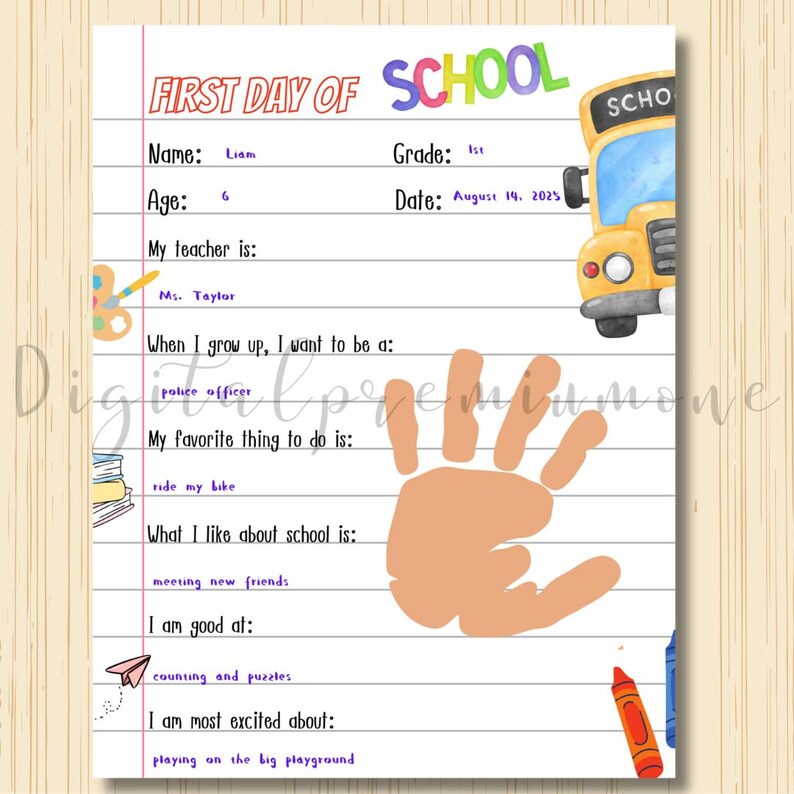 FIRST DAY OF SCHOOL
SCHOO
Name: Liam Grade: 1st
Age: 6 Date: August 14, 2025
My teacher is:
Ms. Taylor
When I grow up, I want to be a:
Digitalpremiumone
police officer
My favorite thing to do is:
ride my bike
What I like about school is:
meeting new friends
I am good at:
counting and puzzles
I am most excited about:
playing on the big playground